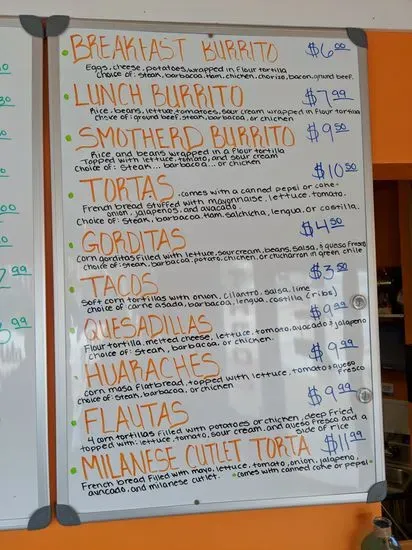 BREAKFAST BURRITO $6.00
Eggs, cheese, potatoes, wrapped in flour tortilla
choice of: steak, barbacoa, ham, chicken, chorizo, bacon, ground beef.
LUNCH BURRITO $7.99
Rice, beans, lettuce, tomatoes, sour cream wrapped in flour tortilla
choice of: ground beef, steak, barbacoa, or chicken
SMOTHERD BURRITO $9.50
Rice and beans wrapped in a flour tortilla
Topped with lettuce, tomato, and sour cream
Choice of: steak... barbacoa... or chicken
$10.50
TORTAS .comes with a canned pepsi or coke.
French bread stuffed with mayonnaise, lettuce, tomato,
onion, jalapenos, and avocado.
Choice of: steak, barbacoa, ham, salchicha, lengua, or costilla.
GORDITAS $4.50
corn gorditas filled with lettuce, sour cream, beans, salsa, & queso fresco
choice of: steak, barbacoa, potato, chicken, or chicharron in green chile
TACOS $3.50
Soft corn tortillas with onion, cilantro, salsa, lime
choice of: carne asada, barbacoa, lengua, costilla (ribs)
QUESADILLAS $9.99
Flour tortilla, melted cheese, lettuce, tomato, avocado & jalapeno
choice of: steak, barbacoa, or chicken.
HUARACHES $9.99
corn masa flatbread, topped with lettuce, tomato & queso
fresco
choice of: steak, barbacoa, or chicken
FLAUTAS $9.99
4 corn tortillas filled with potatoes or chicken, deep fried
topped with: lettuce, tomato, sour cream, and queso fresco and a
side of rice
MILANESE CUTLET TORTA $11.99
French bread filled with mayo, lettuce, tomato, onion, jalapeno,
avocado, and milanese cutlet. comes with canned coke or pepsi